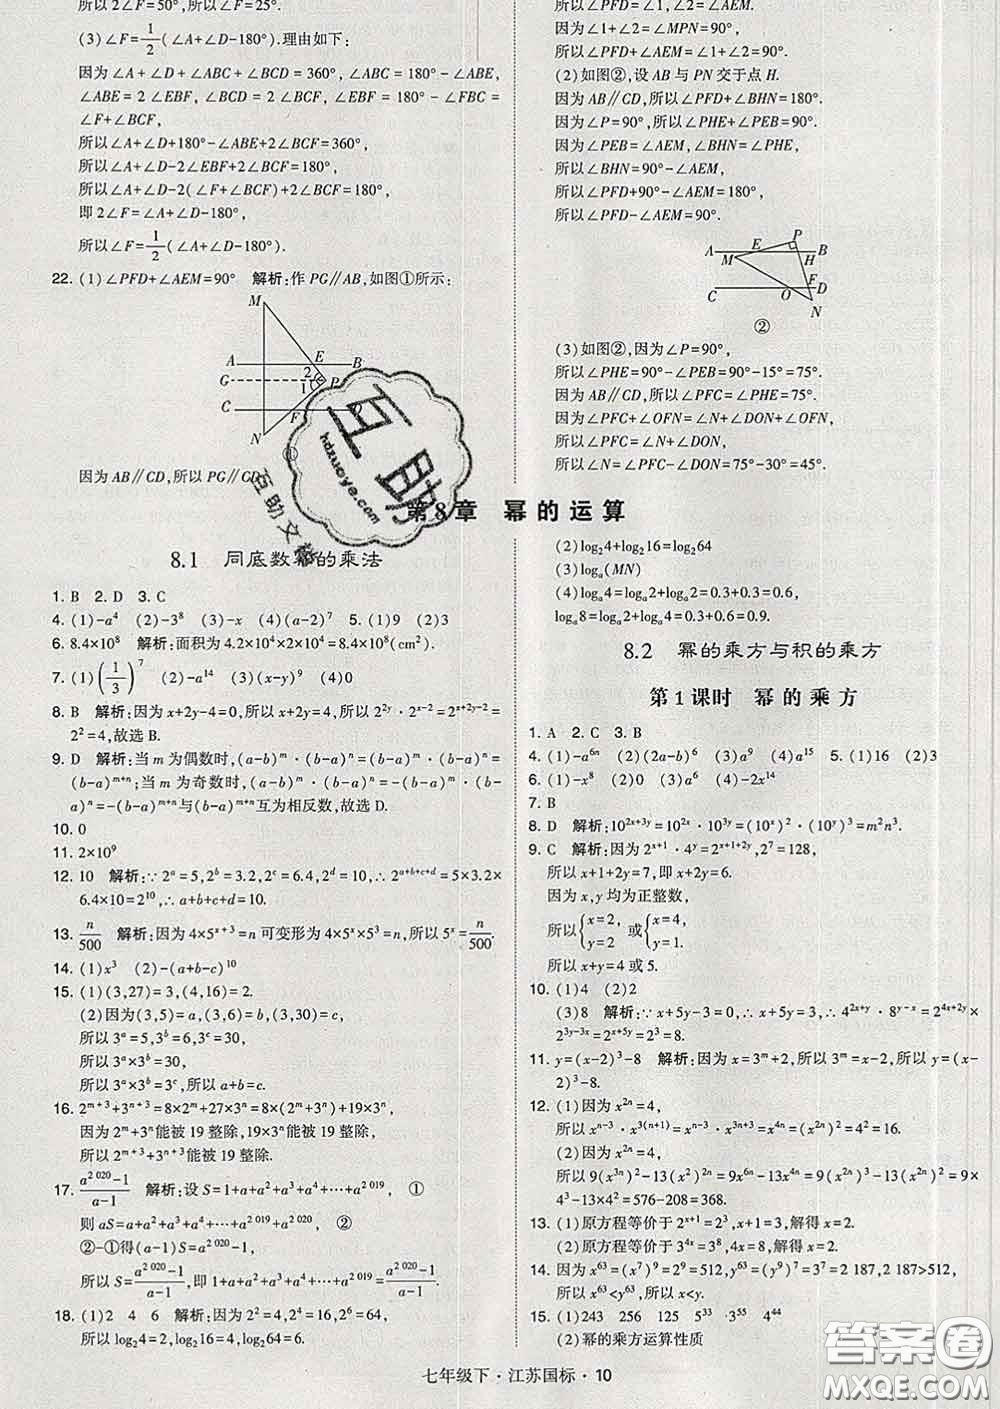 所以2∠F=50°,所以∠F=25°.
(3)∠F=1/2(∠A+∠D-180°).理由如下:
因为∠A+∠D+∠ABC+∠BCD=360°,∠ABC=180°-∠ABE,
∠ABE=2∠EBF,∠BCD=2∠BCF,∠EBF=180°-∠FBC=
∠F+∠BCF,
所以∠A+∠D+180°-∠ABE+∠BCD=360°,
所以∠A+∠D-2∠EBF+2∠BCF=180°,
所以∠A+∠D-2(∠F+∠BCF)+2∠BCF=180°,
即2∠F=∠A+∠D-180°,
所以∠F=1/2(∠A+∠D-180°).
22. (1)∠PFD+∠AEM=90° 解析:作PG∥AB,如图①所示:
M
A E B
2
G P
1
C F
N
因为AB∥CD,所以PG∥CD
所以∠PFD=∠1,∠2=∠AEM.
因为∠1+∠2=∠MPN=90°,
所以∠PFD+∠AEM=∠1+∠2=90°.
(2)如图②,设AB与PN交于点H.
因为AB∥CD,所以∠PFD+∠BHN=180°.
因为∠P=90°,所以∠PHE+∠PEB=90°.
因为∠PEB=∠AEM,∠BHN=∠PHE,
所以∠BHN=90°-∠AEM,
所以∠PFD+90°-∠AEM=180°,
所以∠PFD-∠AEM=90°.
P
A E B
M H
F
C O D
N
②
(3)如图②,因为∠P=90°,
所以∠PHE=90°-∠PEB=90°-15°=75°.
因为AB∥CD,所以∠PFC=∠PHE=75°.
因为∠PFC=∠N+∠DON+∠OFN,
所以∠N=∠PFC-∠DON=75°-30°=45°.
第8章 幂的运算
8.1 同底数幂的乘法
1. B 2. D 3. C
4. (1)-a⁴ (2)-3⁸ (3)-x (4)(a-2)⁷ 5. (1)9 (2)3
6. 8.4×10⁸ 解析:面积为4.2×10⁴×2×10⁴=8.4×10⁸(cm²).
7. (1)(1/3)⁷ (2)-a¹⁴ (3)(x-y)⁹ (4)0
8. B 解析:因为x+2y-4=0,所以x+2y=4,所以2^{2y}·2^{x-2}=2^{x+2y-2}=
2²=4,故选B.
9. D 解析:当m为偶数时,(a-b)^m·(b-a)^n=(b-a)^m·(b-a)^n=
(b-a)^{m+n};当m为奇数时,(a-b)^m·(b-a)^n=-(b-a)^m·(b-
a)^n=-(b-a)^{m+n}与(b-a)^{m+n}互为相反数,故选D.
10. 0
11. 2×10⁹
12. 10 解析:∵2^a=5,2^b=3.2,2^c=6.4,2^d=10,∴2^{a+b+c+d}=5×3.2×
6.4×10=2¹⁰,∴a+b+c+d=10.
13. n/500 解析:因为4×5^{x+3}=n可变形为4×5^x×5³=n,所以5^x=n/500.
14. (1)x³ (2)-(a+b-c)¹⁰
15. (1)(3,27)=3,(4,16)=2.
(2)因为(3,5)=a,(3,6)=b,(3,30)=c,
所以3^a=5,3^b=6,3^c=30,
所以3^a×3^b=30,
所以3^a×3^b=3^c,所以a+b=c.
16. 2^{m+3}+3^{n+3}=8×2^m+27×3^n=8×(2^m+3^n)+19×3^n,
因为2^m+3^n能被19整除,19×3^n能被19整除,
所以2^{m+3}+3^{n+3}能被19整除.
17. (a^{2 020}-1)/(a-1) 解析:设S=1+a+a²+a³+a⁴+…+a^{2 019}, ①
则aS=a+a²+a³+a⁴+…+a^{2 019}+a^{2 020}, ②
②-①得(a-1)S=a^{2 020}-1,
所以S=(a^{2 020}-1)/(a-1),即1+a+a²+a³+a⁴+…+a^{2 019}=(a^{2 020}-1)/(a-1).
18. (1)2 4 6 解析:因为2²=4,2⁴=16,2⁶=64,
所以log₂4=2,log₂16=4,log₂64=6.
(2)log₂4+log₂16=log₂64
(3)log_a(MN)
(4)log_a4=log_a2+log_a2=0.3+0.3=0.6,
log_a8=log_a2+log_a4=0.3+0.6=0.9.
8.2 幂的乘方与积的乘方
第1课时 幂的乘方
1. A 2. C 3. B
4. (1)-a^{6n} (2)(2a-b)⁶ (3)a⁹ (4)a¹⁵ 5. (1)16 (2)3
6. (1)-x⁸ (2)0 (3)a⁶ (4)-2x¹⁴
7. B
8. D 解析:10^{2x+3y}=10^{2x}·10^{3y}=(10^x)²·(10^y)³=m²n³.
9. C 解析:因为2^{x+1}·4^y=2^{x+1+2y},2⁷=128,
所以x+1+2y=7,即x+2y=6.
因为x,y均为正整数,
所以{x=2, y=2 或{x=4, y=1.
所以x+y=4或5.
10. (1)4 (2)2
(3)8 解析:∵x+5y-3=0,∴x+5y=3,∴4^{2x+y}·8^{y-x}=2^{4x+2y}×
2^{3y-3x}=2^{x+5y}=2³=8.
11. y=(x-2)³-8 解析:因为x=3^m+2,所以3^m=x-2,所以y=(x-
2)³-8.
12. (1)因为x^{2n}=4,
所以x^{n-3}·x^{3(n+1)}=x^{n-3}·x^{3n+3}=x^{4n}=(x^{2n})²=4²=16.
(2)因为x^{2n}=4,
所以9(x^{3n})²-13(x²)^{2n}=9x^{6n}-13x^{4n}=9(x^{2n})³-13(x^{2n})²=9×
4³-13×4²=576-208=368.
13. (1)原方程等价于2^{x+1}=2³,x+1=3,解得x=2.
(2)原方程等价于3^{4x}=3⁸,4x=8,解得x=2.
14. 因为x⁶³=(x⁷)⁹=2⁹=512,y⁶³=(y⁹)⁷=3⁷=2 187,2 187>512,
所以x⁶³<y⁶³,所以x<y.
15. (1)243 256 125 5³³·3⁵⁵ 4⁴⁴
(2)幂的乘方运算性质
七年级下·江苏国标·10
互助
hdzuoye.com
答案圈
MXQE.COM